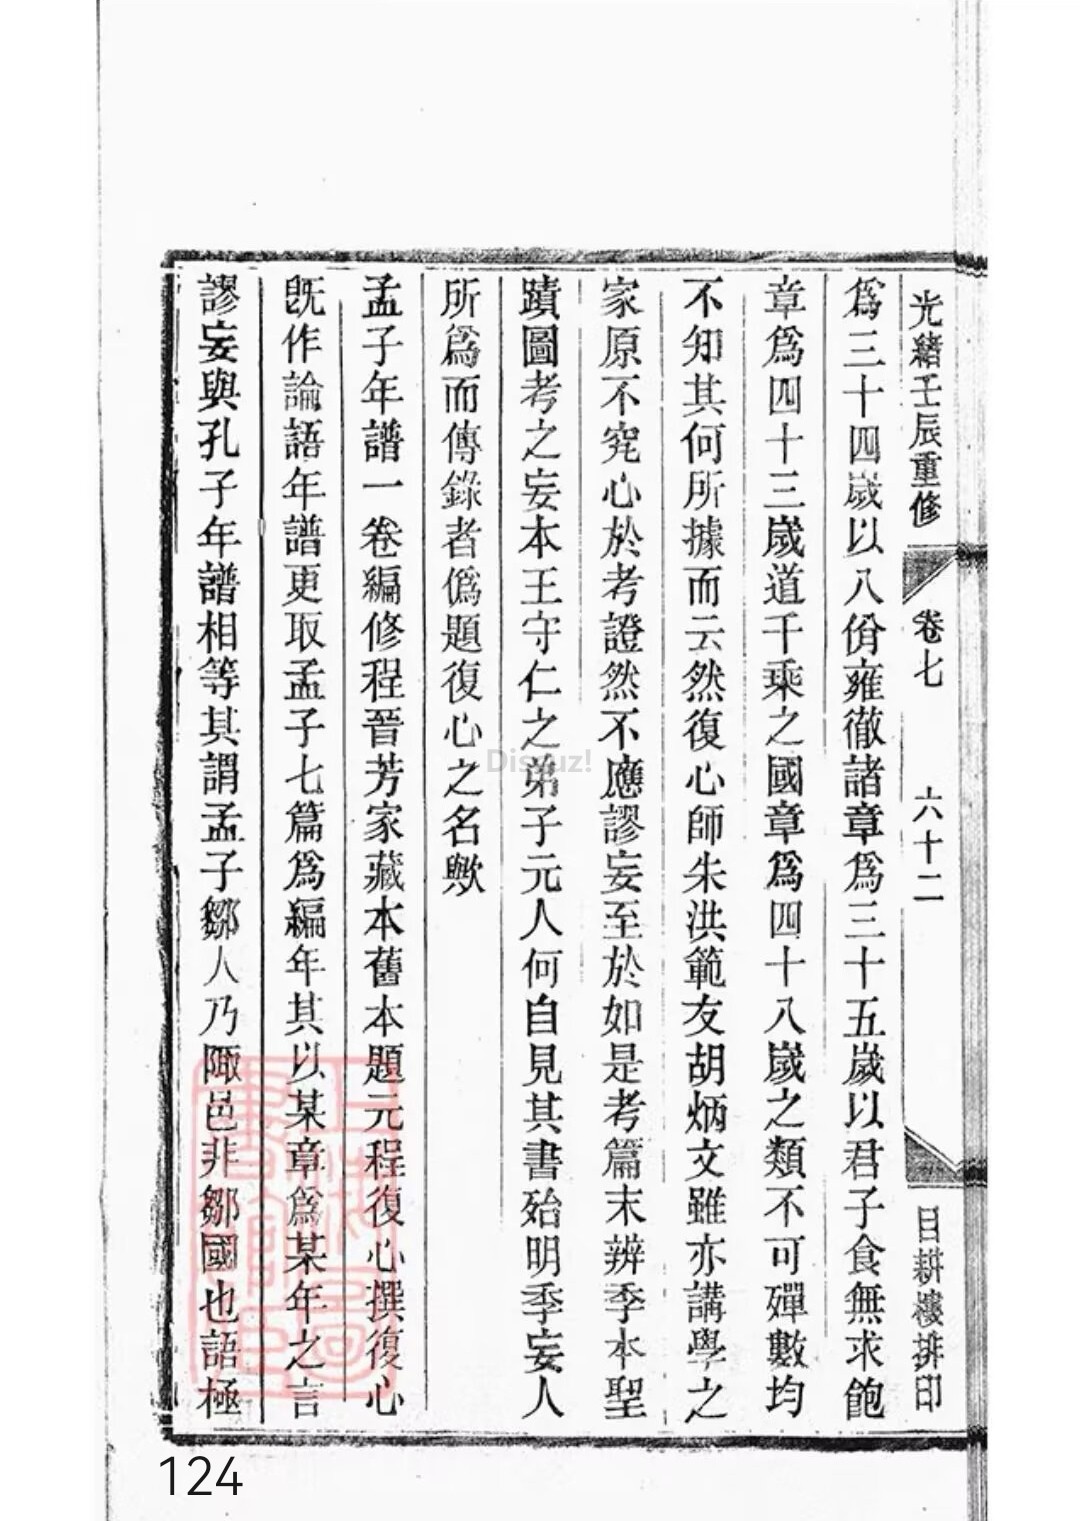 光緒壬辰重修
卷七
六十二
目耕樓排印
爲三十四歲以八佾雍徹諸章爲三十五歲以君子食無求飽
章爲四十三歲道千乘之國章爲四十八歲之類不可殫數均
不知其何所據而云然復心師朱洪範友胡炳文雖亦講學之
家原不究心於考證然不應謬妄至於如是考篇末辨季本聖
蹟圖考之妄本王守仁之弟子元人何自見其書殆明季妄人
所爲而傳錄者僞題復心之名歟
孟子年譜一卷編修程晉芳家藏本舊本題元程復心撰復心
旣作論語年譜更取孟子七篇爲編年其以某章爲某年之言
謬妄與孔子年譜相等其謂孟子鄒人乃陬邑非鄒國也語極
上海圖書館藏
Discuz!
124